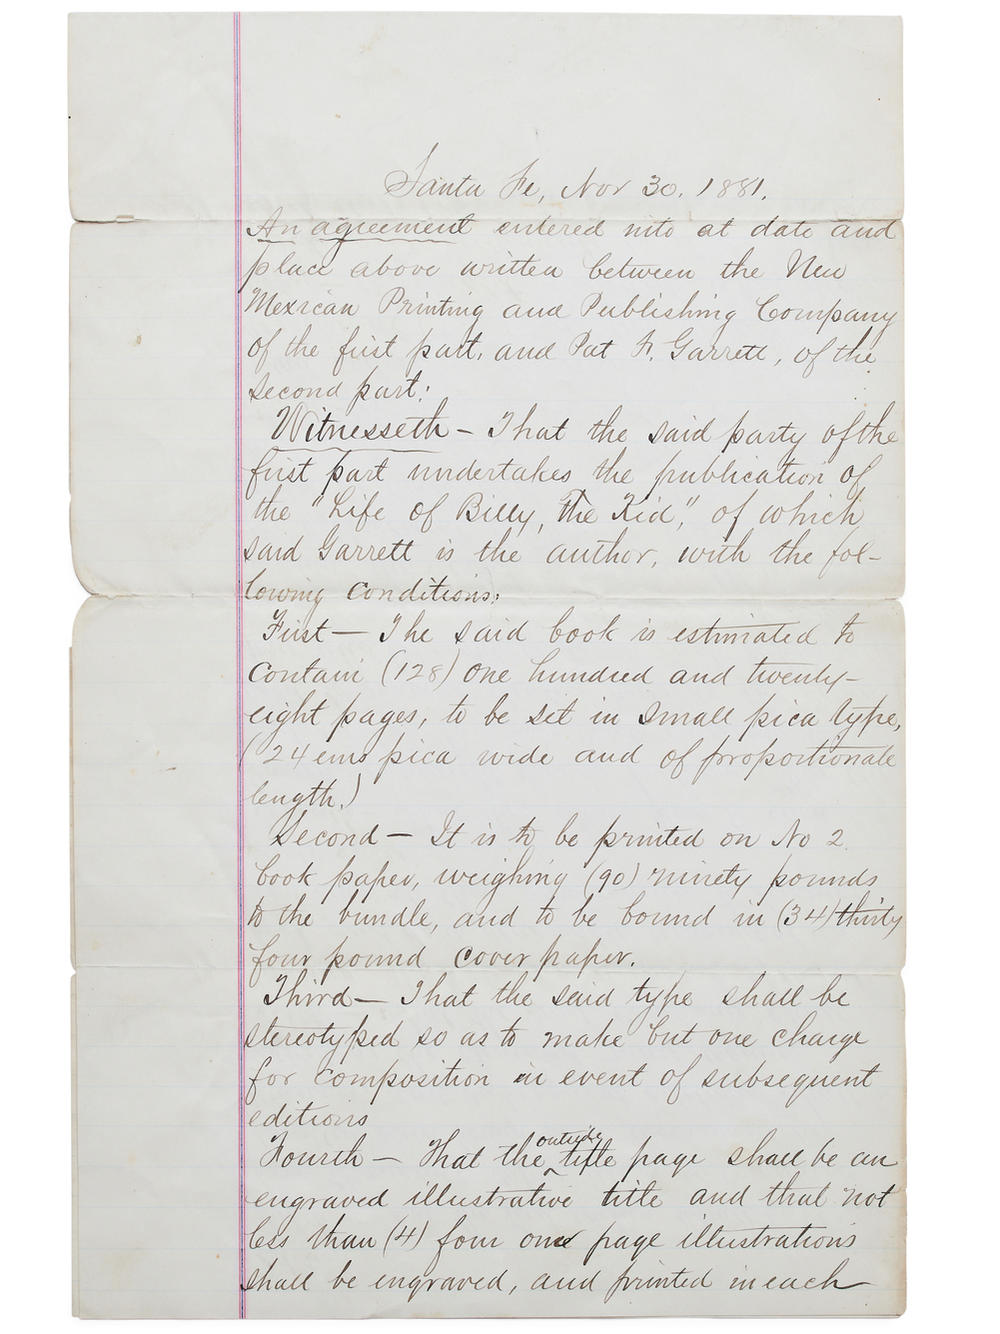 Santa Fe, Nov 30, 1881.
An agreement entered into at date and
place above written between the New
Mexican Printing and Publishing Company
of the first part, and Pat F. Garrett, of the
second part:
Witnesseth – That the said party of the
first part undertakes the publication of
the "Life of Billy, the Kid," of which
said Garrett is the author, with the fol-
lowing conditions:
First – The said book is estimated to
contain (128) one hundred and twenty-
eight pages, to be set in small pica type,
(24 ems pica wide and of proportionate
length.)
Second – It is to be printed on No 2
book paper, weighing (90) ninety pounds
to the bundle, and to be bound in (34) thirty
four pound cover paper.
Third – That the said type shall be
stereotyped so as to make but one charge
for composition in event of subsequent
editions
Fourth – That the outside title page shall be an
engraved illustrative title and that not
less than (4) four one page illustrations
shall be engraved, and printed in each